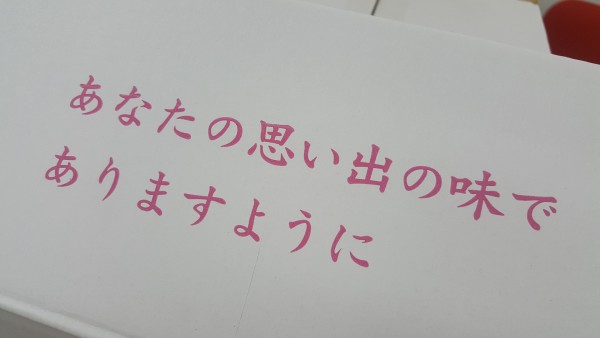 あなたの思い出の味で
ありますように